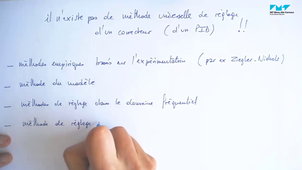 il n'existe pas de méthode universelle de réglage
d'un correcteur (d'un PID) !!
- méthodes empiriques basées sur l'expérimentation (par ex Ziegler-Nichols)
- méthode du modèle
- méthodes de réglage dans le domaine fréquentiel
- méthode de réglage